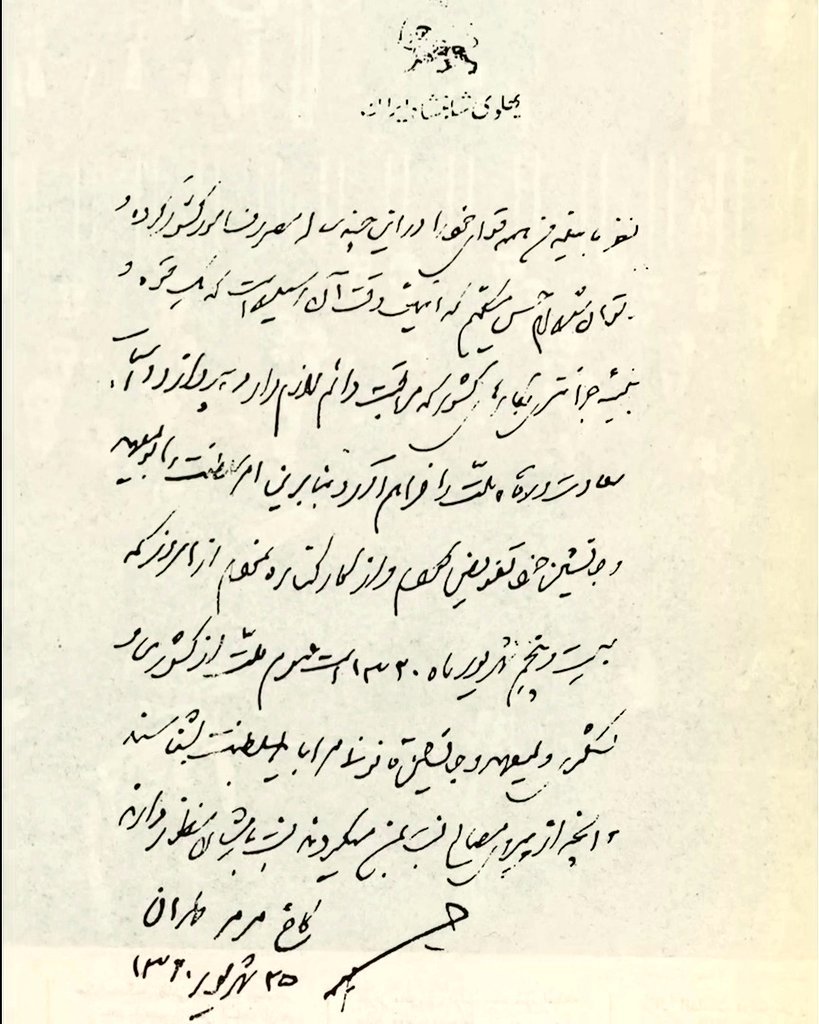 پهلوی شاهنشاه ایران
نظر باینکه من همه قوای خود را در این چند ساله مصروف امور کشور کرده و
ناتوان شده‌ام حس میکنم که اینک وقت آن رسیده است که یک قوه و
بنیه جوانتری بکارهای کشور که مراقبت دائم لازم دارد بپردازد و اسباب
سعادت و رفاه ملت را فراهم آورد بنابراین امور سلطنت را بولیعهد
و جانشین خود تفویض کردم و از کار کناره نمودم از امروز که
بیست و پنجم شهریور ماه ۱۳۲۰ است عموم ملت از کشوری و
لشگری ولیعهد و جانشین قانونی مرا باید بسلطنت بشناسند
و آنچه از پیروی مصالح نسبت بمن میکردند نسبت بایشان منظور دارند
کاخ مرمر طهران
۲۵ شهریور ۱۳۲۰